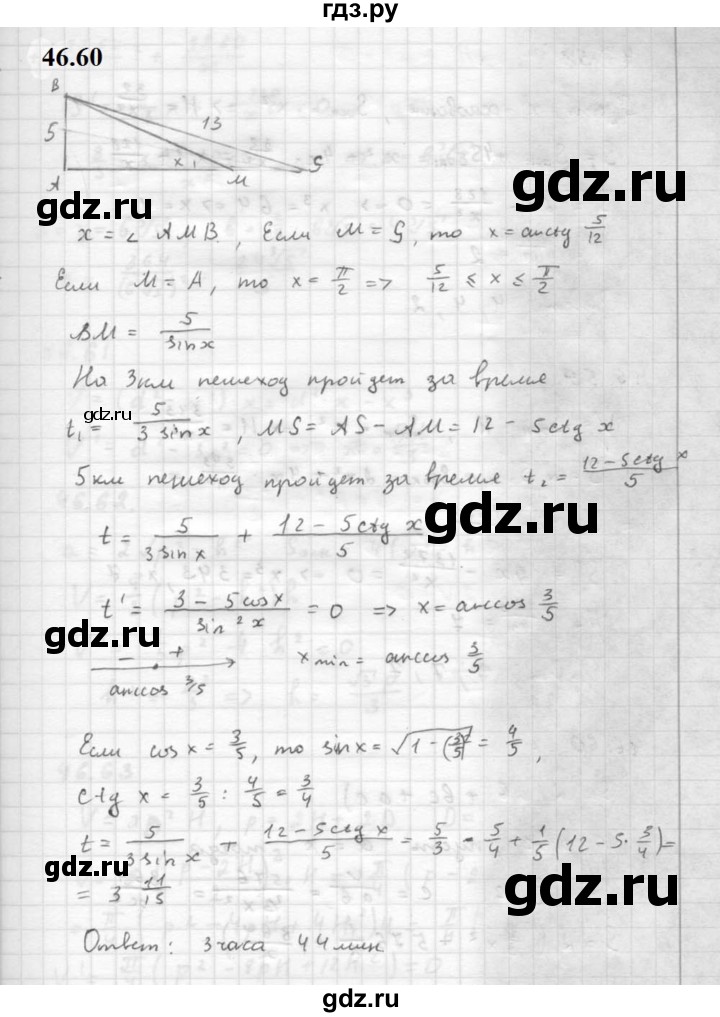 гдз.ру
46.60
B
5
13
x
A
M
S
x = ∠ AMB, Если M = S, то x = arcctg 5/12
Если M = A, то x = π/2 => 5/12 ≤ x ≤ π/2
BM = 5/(3 sin x)
На 3км пешеход пройдет за время
gdz.ru
t₁ = 5/(3 sin x), MS = AS - AM = 12 - 5ctg x
5км пешеход пройдет за время t₂ = (12-5ctg x)/5
gdz.ru
t = 5/(3 sin x) + (12 - 5ctg x)/5
gdz.ru
t' = (3 - 5cos x)/(3 sin² x) = 0 => x = arccos 3/5
- +
arccos 3/5
x min = arccos 3/5
gdz.ru
Если cos x = 3/5, то sin x = √(1 - (3/5)²) = 4/5,
ctg x = 3/5 : 4/5 = 3/4
t = 5/(3 sin x) + (12 - 5ctg x)/5 = 5/3 · 5/4 + 1/5 (12 - 5 · 3/4) =
gdz.ru
gdz.ru
= 3 11/15
Ответ: 3 часа 44 мин
gdz.ru
гдз.ру